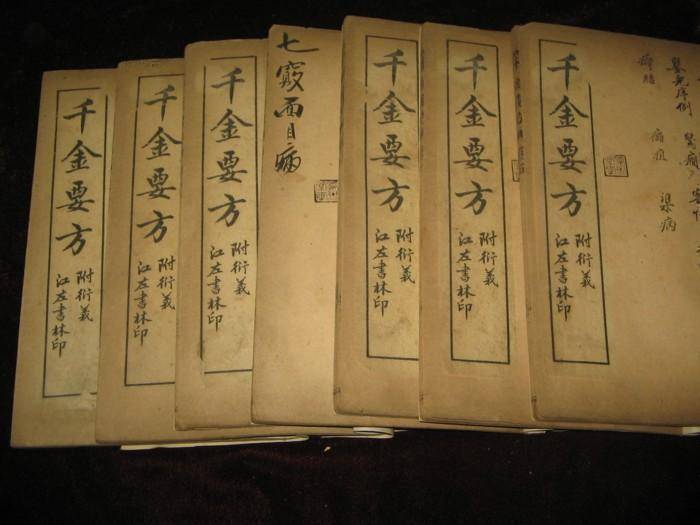 千金要方
附衍義
江左書林印
千金要方
附衍義
江左書林印
千金要方
附衍義
江左書林印
七竅面目病
千金要方
附衍義
江左書林印
千金要方
附衍義
江左書林印
千金要方
附衍義
江左書林印
嬰兒序例 驚癇 客忤